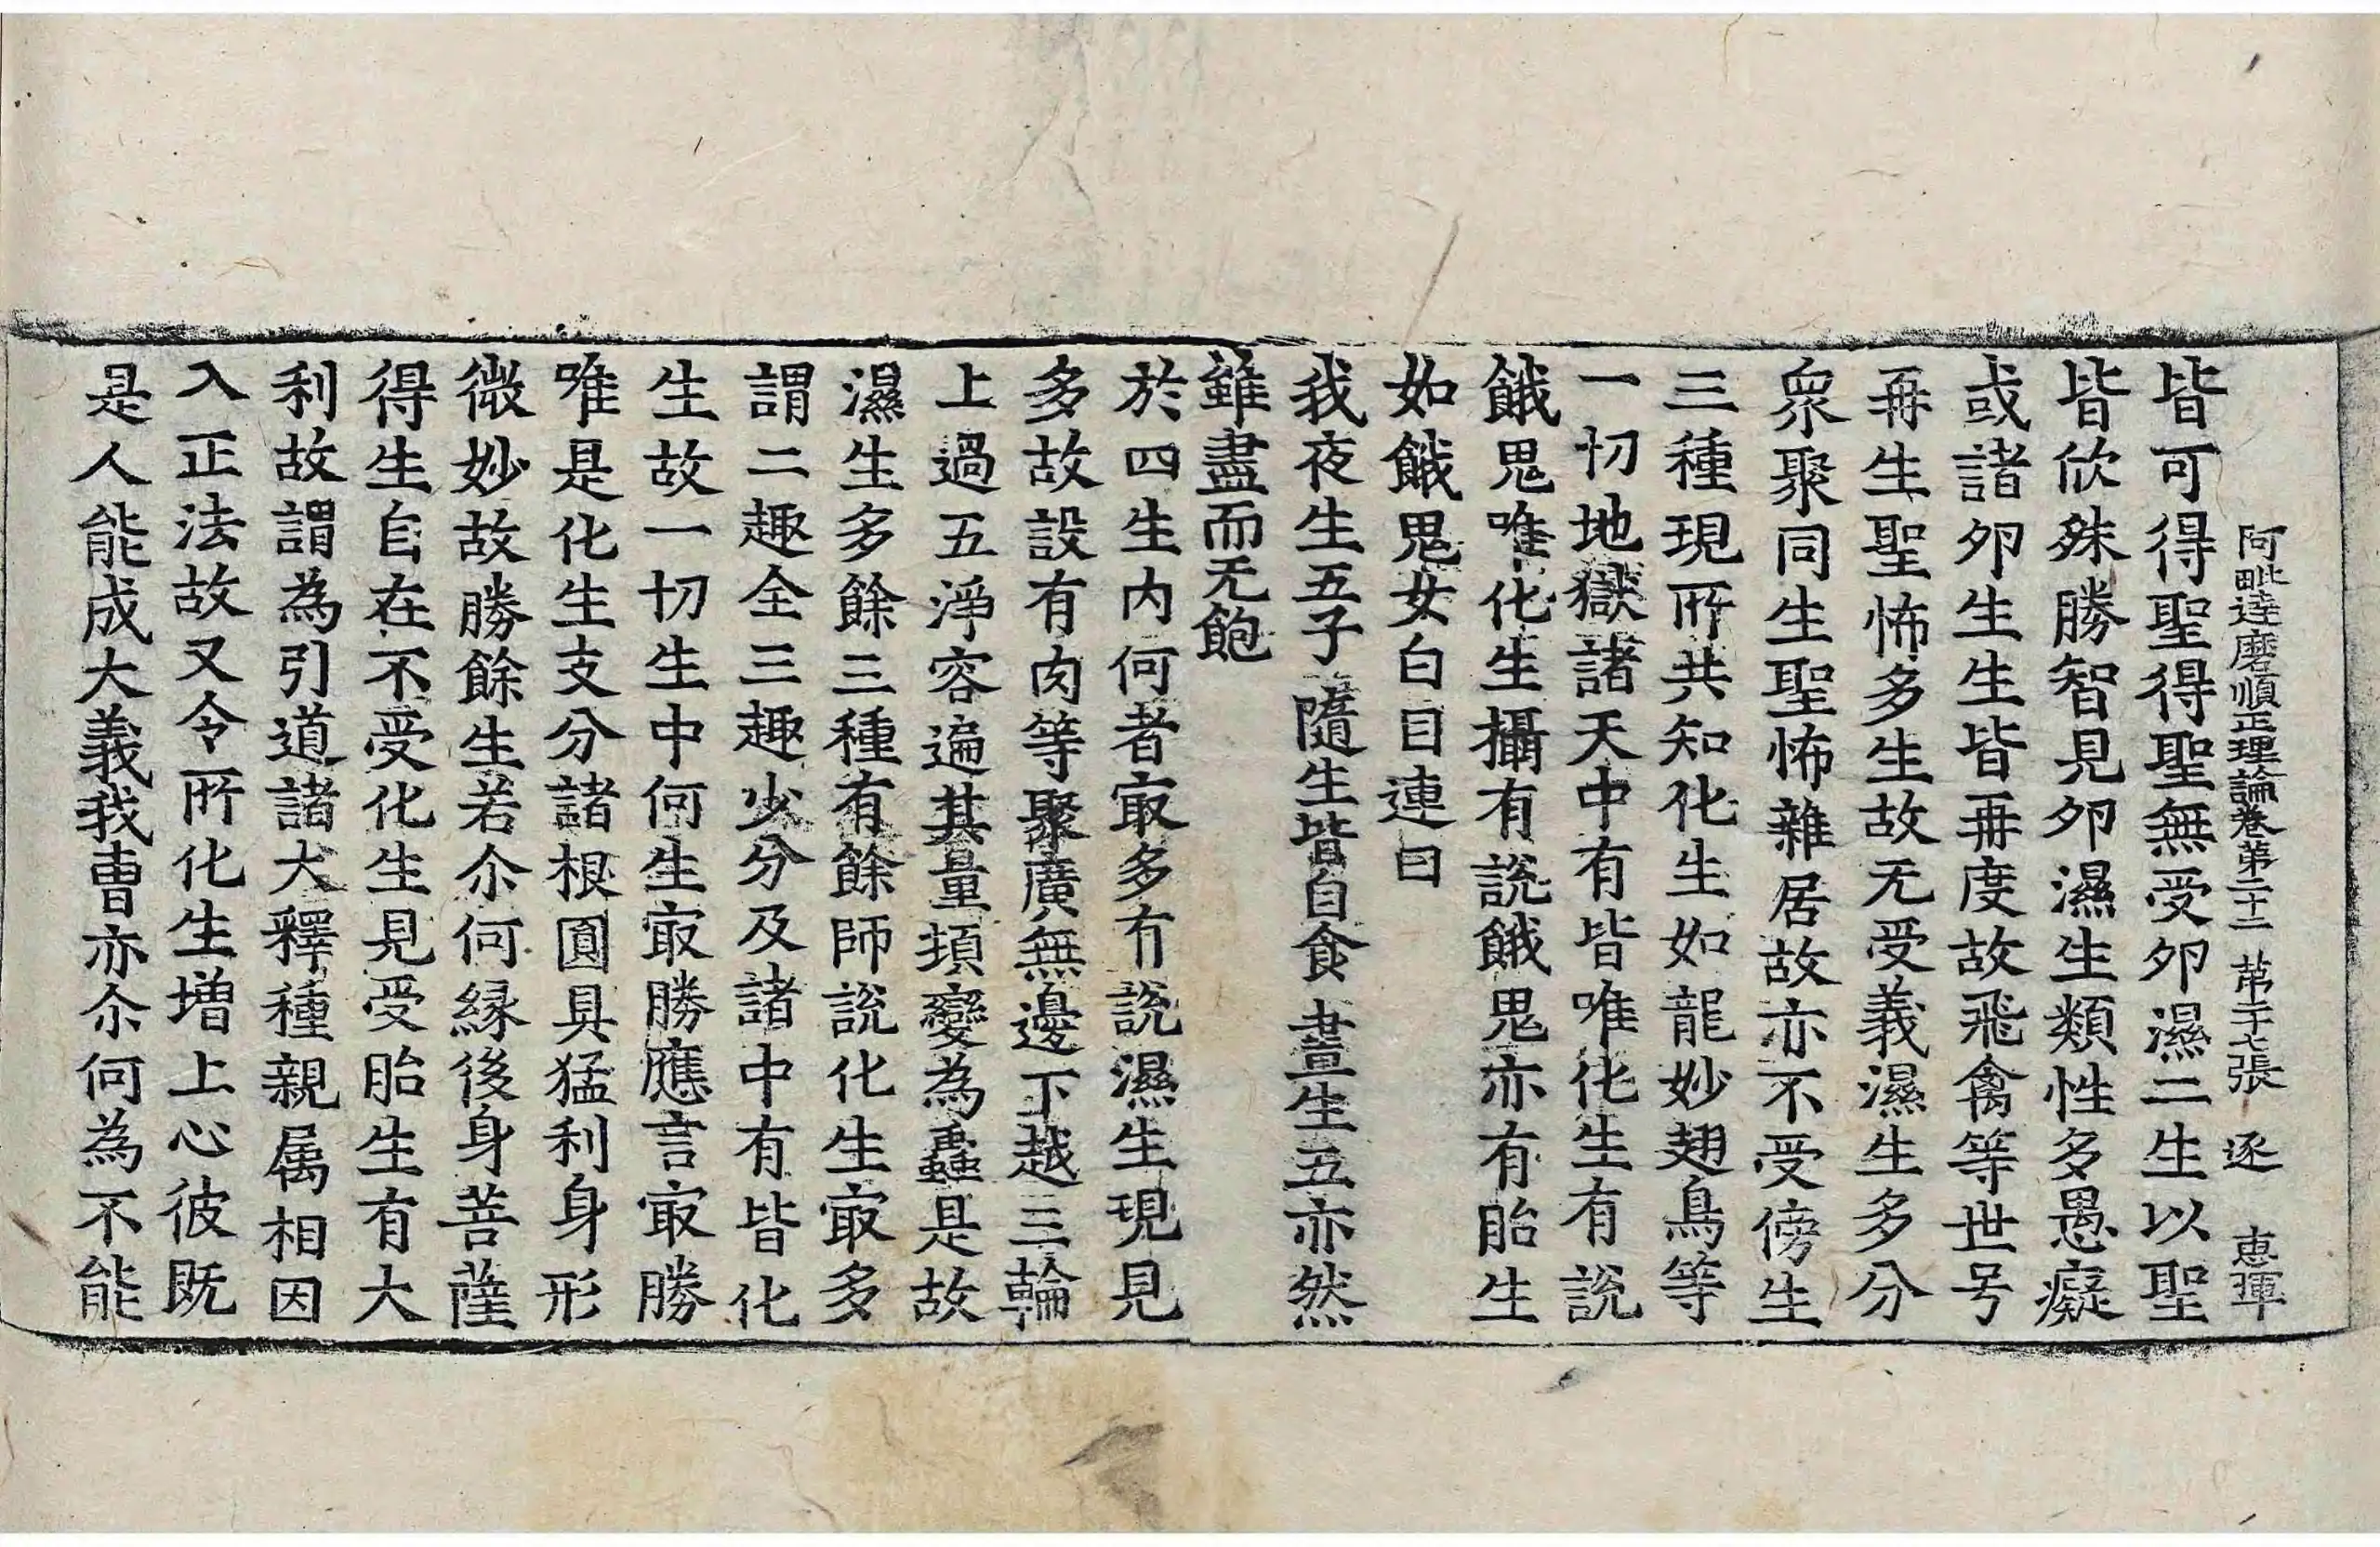 阿毗達磨順正理論卷第二十二 苐二十七張 逐 恵琿
皆可得聖得聖無受夘濕二生以聖
皆欣殊勝智見夘濕生類性多愚癡
或諸夘生生皆再度故飛禽等世号
再生聖怖多生故无受義濕生多分
衆聚同生聖怖雜居故亦不受傍生
三種現所共知化生如龍妙翅鳥等
一切地獄諸天中有皆唯化生有說
餓鬼唯化生攝有說餓鬼亦有胎生
如餓鬼女白目連曰
我夜生五子 隨生皆自食 晝生五亦然
雖盡而无飽
於四生內何者㝡多有說濕生現見
多故設有肉等聚廣無邊下越三輪
上過五淨容遍其量頓變為蟲是故
濕生多餘三種有餘師說化生㝡多
謂二趣全三趣少分及諸中有皆化
生故一切生中何生㝡勝應言㝡勝
唯是化生支分諸根圓具猛利身形
微妙故勝餘生若尒何緣後身菩薩
得生自在不受化生見受胎生有大
利故謂為引道諸大釋種親屬相因
入正法故又令所化生增上心彼既
是人能成大義我曹亦尒何為不能